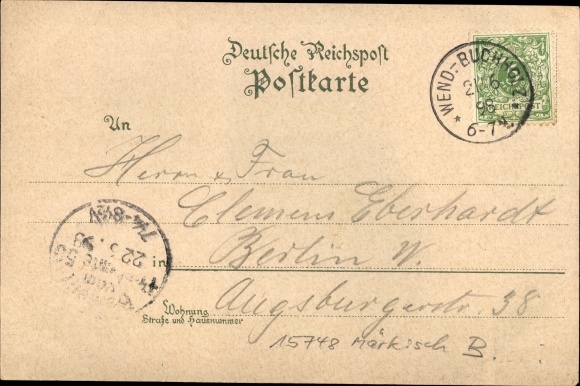 Deutsche Reichspost
Postkarte
WEND.-BUCHHOLZ
98
6-7N
REICHSPOST
An
Herrn & Frau
Clemens Eberhardt
in Berlin W.
Augsburgerstr. 38
Wohnung
Straße und Hausnummer
22 98
7¼-8½N
15748 Märkisch B.